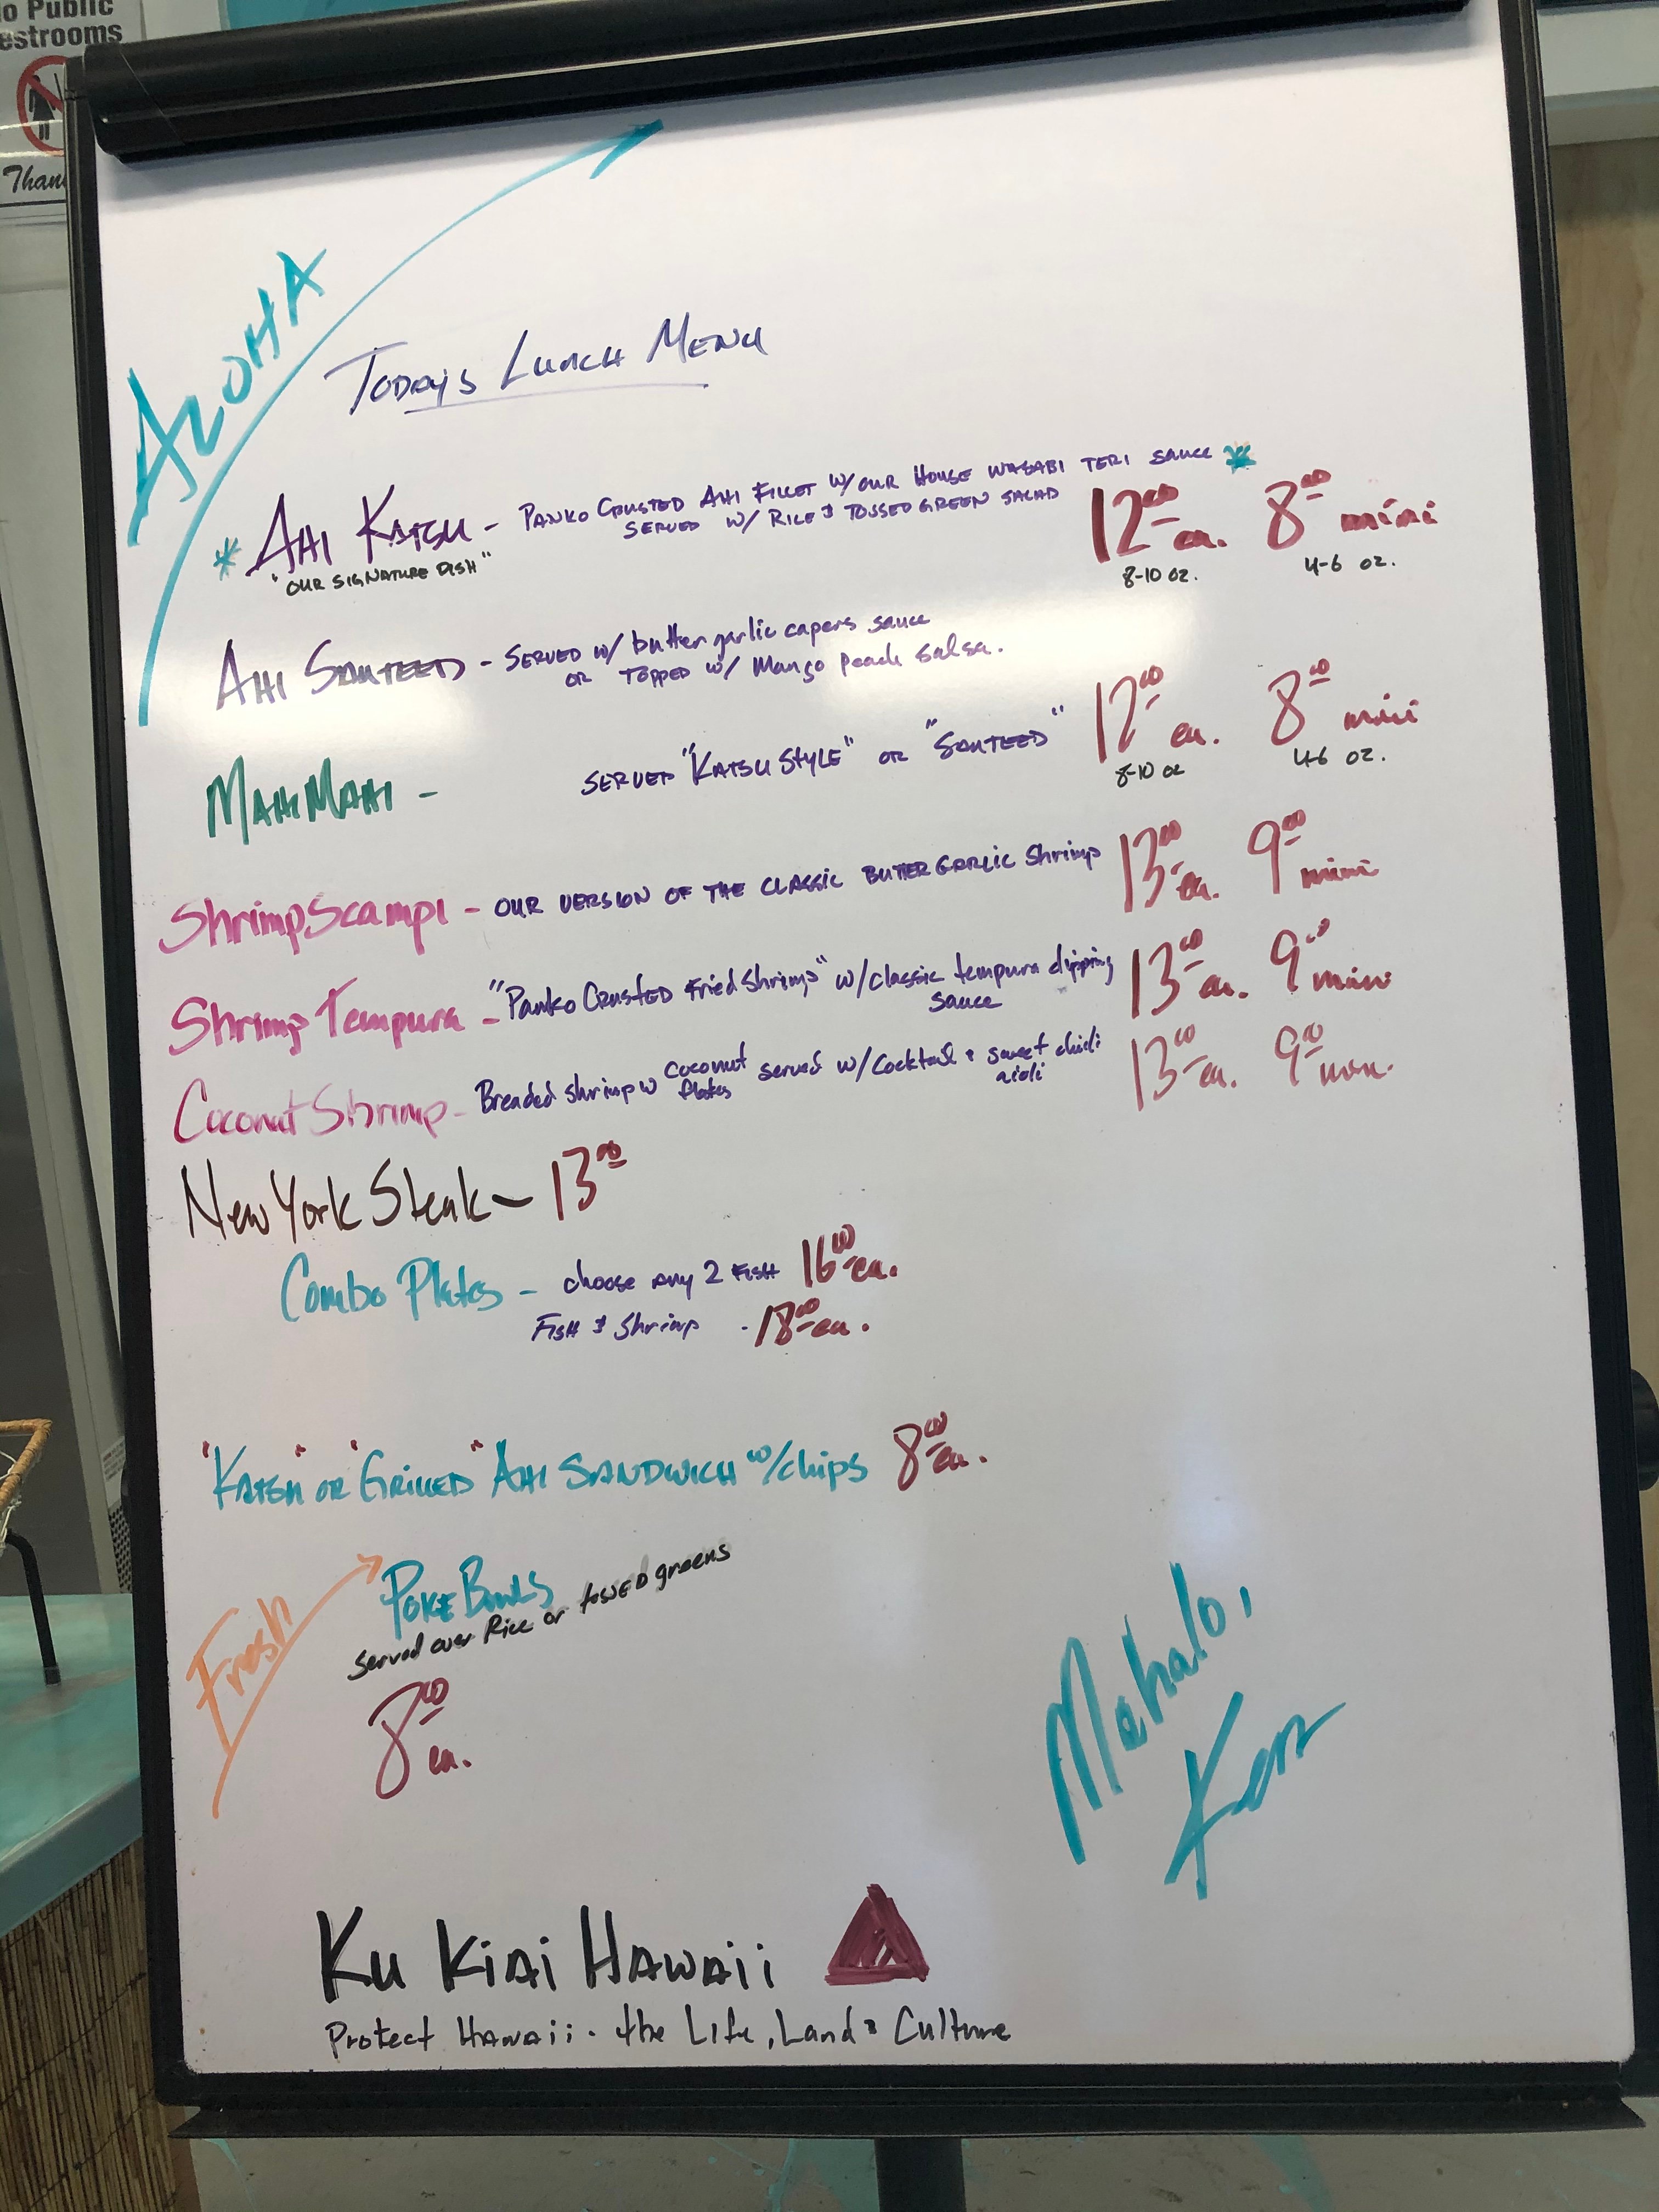 o Public
estrooms
Than
ALOHA
Today's Lunch Menu
* Ahi Katsu - Panko Crusted Ahi Fillet w/ our House Wasabi Teri Sauce *
Served w/ Rice & Tossed Green Salad
12.00 ea. 8.00 mini
"Our Signature Dish"
8-10 oz. 4-6 oz.
Ahi Sauteed - Served w/ butter garlic capers sauce
or topped w/ Mango peach salsa.
12.00 ea. 8.00 mini
8-10 oz 4-6 oz.
MahiMahi - Served "Katsu Style" or "Sauteed"
Shrimp Scampi - our version of the classic butter garlic shrimp 13.00 ea. 9.00 mini
Shrimp Tempura - "Panko Crusted Fried Shrimp" w/classic tempura dipping sauce 13.00 ea. 9.00 mini
Coconut Shrimp - Breaded shrimp w coconut flakes served w/ Cocktail & sweet chili aioli 13.00 ea. 9.00 mini
New York Steak - 13.00
Combo Plates - choose any 2 Fish 16.00 ea.
Fish & Shrimp - 18.00 ea.
"Katsu" or "Grilled" Ahi Sandwich w/chips 8.00 ea.
Fresh
Poke Bowls
Served over Rice or tossed greens
8.00 ea.
Mahalo,
Ken
Ku Kiai Hawaii
Protect Hawaii. the Life, Land & Culture